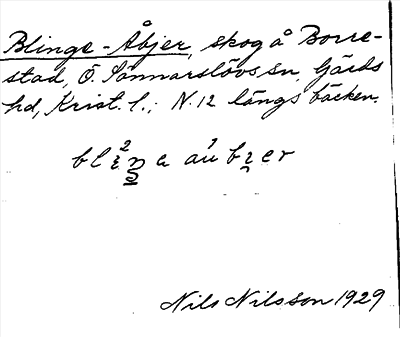 Blinge-Åbjer, skog å Borre-
stad, Ö. Sönnarslövs sn, Gärds
hd, Krist. l.; N.12 längs bäcken.
Nils Nilsson 1929